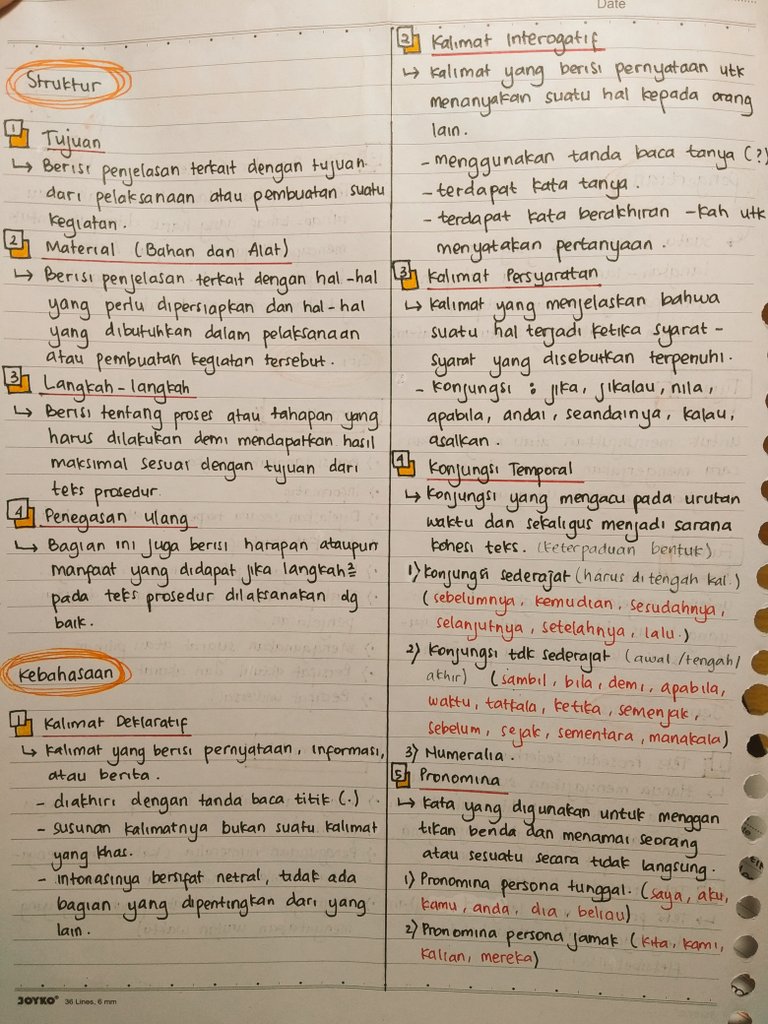 Date
Struktur
1 Tujuan
↳ Berisi penjelasan terkait dengan tujuan
dari pelaksanaan atau pembuatan suatu
kegiatan.
2 Material (Bahan dan Alat)
↳ Berisi penjelasan terkait dengan hal-hal
yang perlu dipersiapkan dan hal-hal
yang dibutuhkan dalam pelaksanaan
atau pembuatan kegiatan tersebut.
3 Langkah-langkah
↳ Berisi tentang proses atau tahapan yang
harus dilakukan demi mendapatkan hasil
maksimal sesuai dengan tujuan dari
teks prosedur.
4 Penegasan ulang
↳ Bagian ini juga berisi harapan ataupun
manfaat yang didapat jika langkah²
pada teks prosedur dilaksanakan dg
baik.
Kebahasaan
1 Kalimat Deklaratif
↳ Kalimat yang berisi pernyataan, informasi,
atau berita.
- diakhiri dengan tanda baca titik (.)
- susunan kalimatnya bukan suatu kalimat
yang khas.
- intonasinya bersifat netral, tidak ada
bagian yang dipentingkan dari yang
lain.
2 Kalimat Interogatif
↳ Kalimat yang berisi pernyataan utk
menanyakan suatu hal kepada orang
lain.
- menggunakan tanda baca tanya (?)
- terdapat kata tanya.
- terdapat kata berakhiran -kah utk
menyatakan pertanyaan.
3 Kalimat Persyaratan
↳ Kalimat yang menjelaskan bahwa
suatu hal terjadi ketika syarat-
syarat yang disebutkan terpenuhi.
- Konjungsi : jika, jikalau, nila,
apabila, andai, seandainya, kalau,
asalkan.
4 Konjungsi Temporal
↳ Konjungsi yang mengacu pada urutan
waktu dan sekaligus menjadi sarana
kohesi teks. (keterpaduan bentuk)
1) Konjungsi sederajat (harus di tengah kal.)
(sebelumnya, kemudian, sesudahnya,
selanjutnya, setelahnya, lalu.)
2) Konjungsi tdk sederajat (awal/tengah/
akhir) (sambil, bila, demi, apabila,
waktu, tatkala, ketika, semenjak,
sebelum, sejak, sementara, manakala)
3) Numeralia.
5 Pronomina
↳ Kata yang digunakan untuk menggan
tikan benda dan menamai seorang
atau sesuatu secara tidak langsung.
1) Pronomina persona tunggal. (saya, aku,
kamu, anda, dia, beliau)
2) Pronomina persona jamak (kita, kami,
kalian, mereka)
JOYKO® 36 Lines, 6 mm